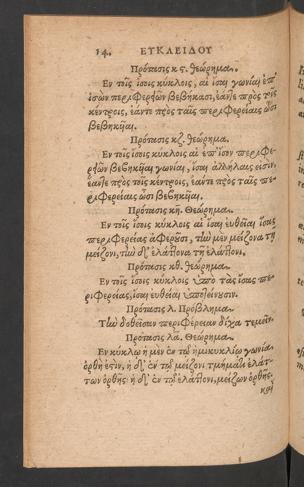 14. ΕΥΚΛΕΙΔΟΥ
Πρότασις κϛ. θεώρημα.
Εν τοῖς ἴσοις κύκλοις, αἱ ἴσαι γωνίαι ἐπ'
ἴσων περιφερειῶν βεβήκασι, ἐάντε πρὸς τοῖς
κέντροις, ἐάντε πρὸς ταῖς περιφερείαις ὦσι
βεβηκῦιαι.
Πρότασις κζ. θεώρημα.
Εν τοῖς ἴσοις κύκλοις αἱ ἐπ' ἴσων περιφε-
ρειῶν βεβηκῦιαι γωνίαι, ἴσαι ἀλλήλαις εἰσὶν,
ἐάντε πρὸς τοῖς κέντροις, ἐάντε πρὸς ταῖς πε-
ριφερείαις ὦσι βεβηκῦιαι.
Πρότασις κη. Θεώρημα.
Εν τοῖς ἴσοις κύκλοις αἱ ἴσαι εὐθεῖαι ἴσας
περιφερείας ἀφαιροῦσι, τὴν μὲν μείζονα τῇ
μείζονι, τὴν δ' ἐλάττονα τῇ ἐλάττονι.
Πρότασις κθ. θεώρημα.
Εν τοῖς ἴσοις κύκλοις ὑπὸ τὰς ἴσας πε-
ριφερείας, ἴσαι εὐθεῖαι ὑποτείνουσιν.
Πρότασις λ. Πρόβλημα.
Τὴν δοθεῖσαν περιφέρειαν δίχα τεμεῖν.
Πρότασις λα. Θεώρημα.
Εν κύκλῳ ἡ μὲν ἐν τῷ ἡμικυκλίῳ γωνία
ὀρθή ἐστιν, ἡ δ' ἐν τῷ μείζονι τμήματι ἐλάτ-
των ὀρθῆς· ἡ δ' ἐν τῷ ἐλάττονι, μείζων ὀρθῆς·
καὶ